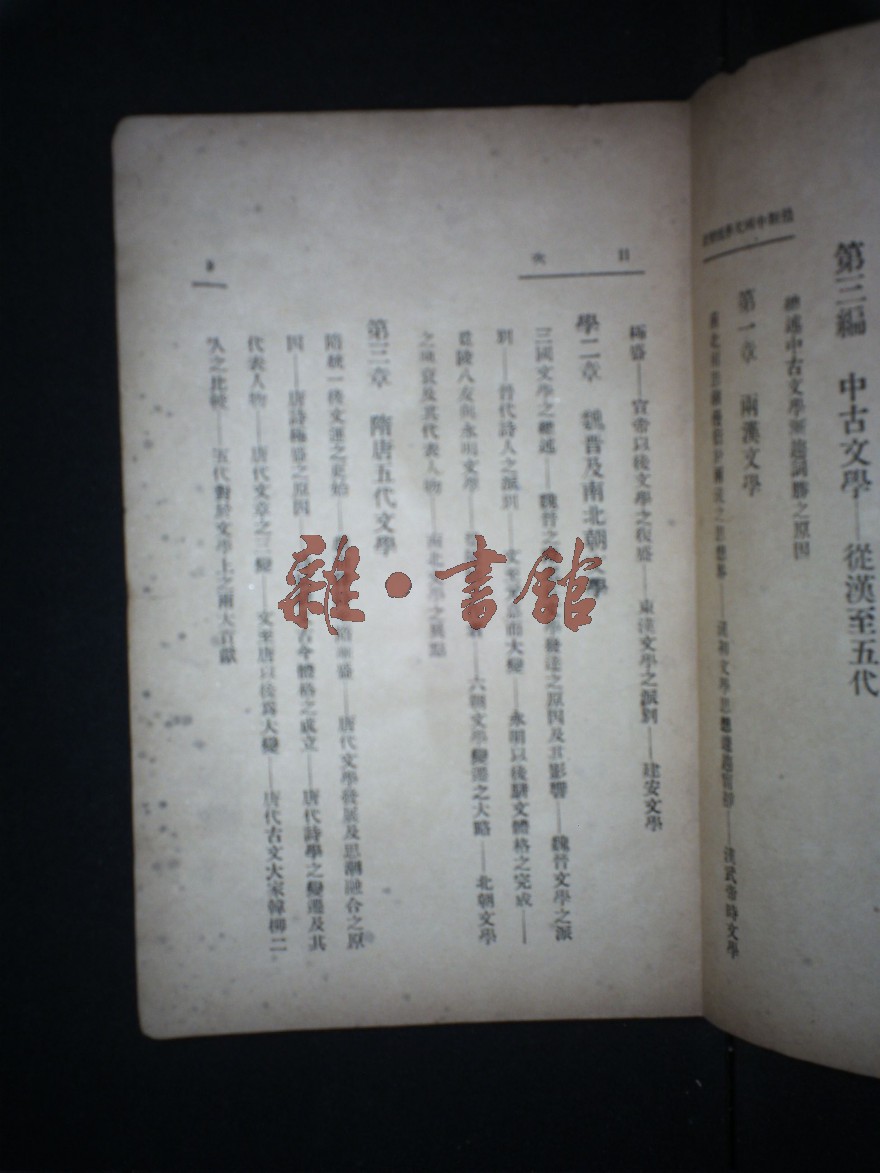 第三編　中古文學——從漢至五代
標述中古文學
之原因
第一章　兩漢文學
之思想
漢初文學思想
漢武帝時文學
目　次
極盛——宣帝以後文學之復盛——東漢文學之派別——建安文學
學二章　魏晉及南北朝
學
三國文學之概述——魏晉之
發達之原因及其影響——魏晉文學之派
別——晉代詩人之派別——文
而大變——永明以後駢文體格之完成——
竟陵八友與永明文學——
六朝文學變遷之大略——北朝文學
之
及其代表人物——南北文學之異點
第三章　隋唐五代文學
隋統一後文運之更始——
唐代文學發展及思潮融合之原
因——唐詩極盛之原因——
古今體格之成立——唐代詩學之變遷及其
代表人物——唐代文章之三變——文至唐以後爲大變——唐代古文大家韓柳二
人之比較——五代對於文學上之兩大貢獻
雜·書館